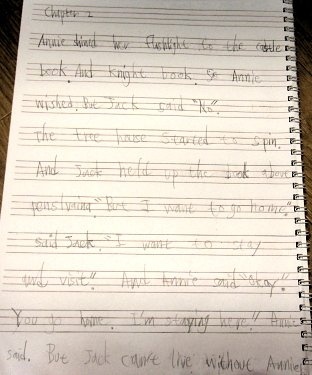 Chapter 2
Annie shined her flashlight to the castle
book. And knight book. So Annie
wished. But Jack said "No".
The tree house started to spin.
And Jack held up the book above
penslvaina. "But I want to go home."
said Jack. "I want to stay
and visit." And Annie said "okay."
You go home. I'm staying here." Annie
said. But Jack can't live without Annie.